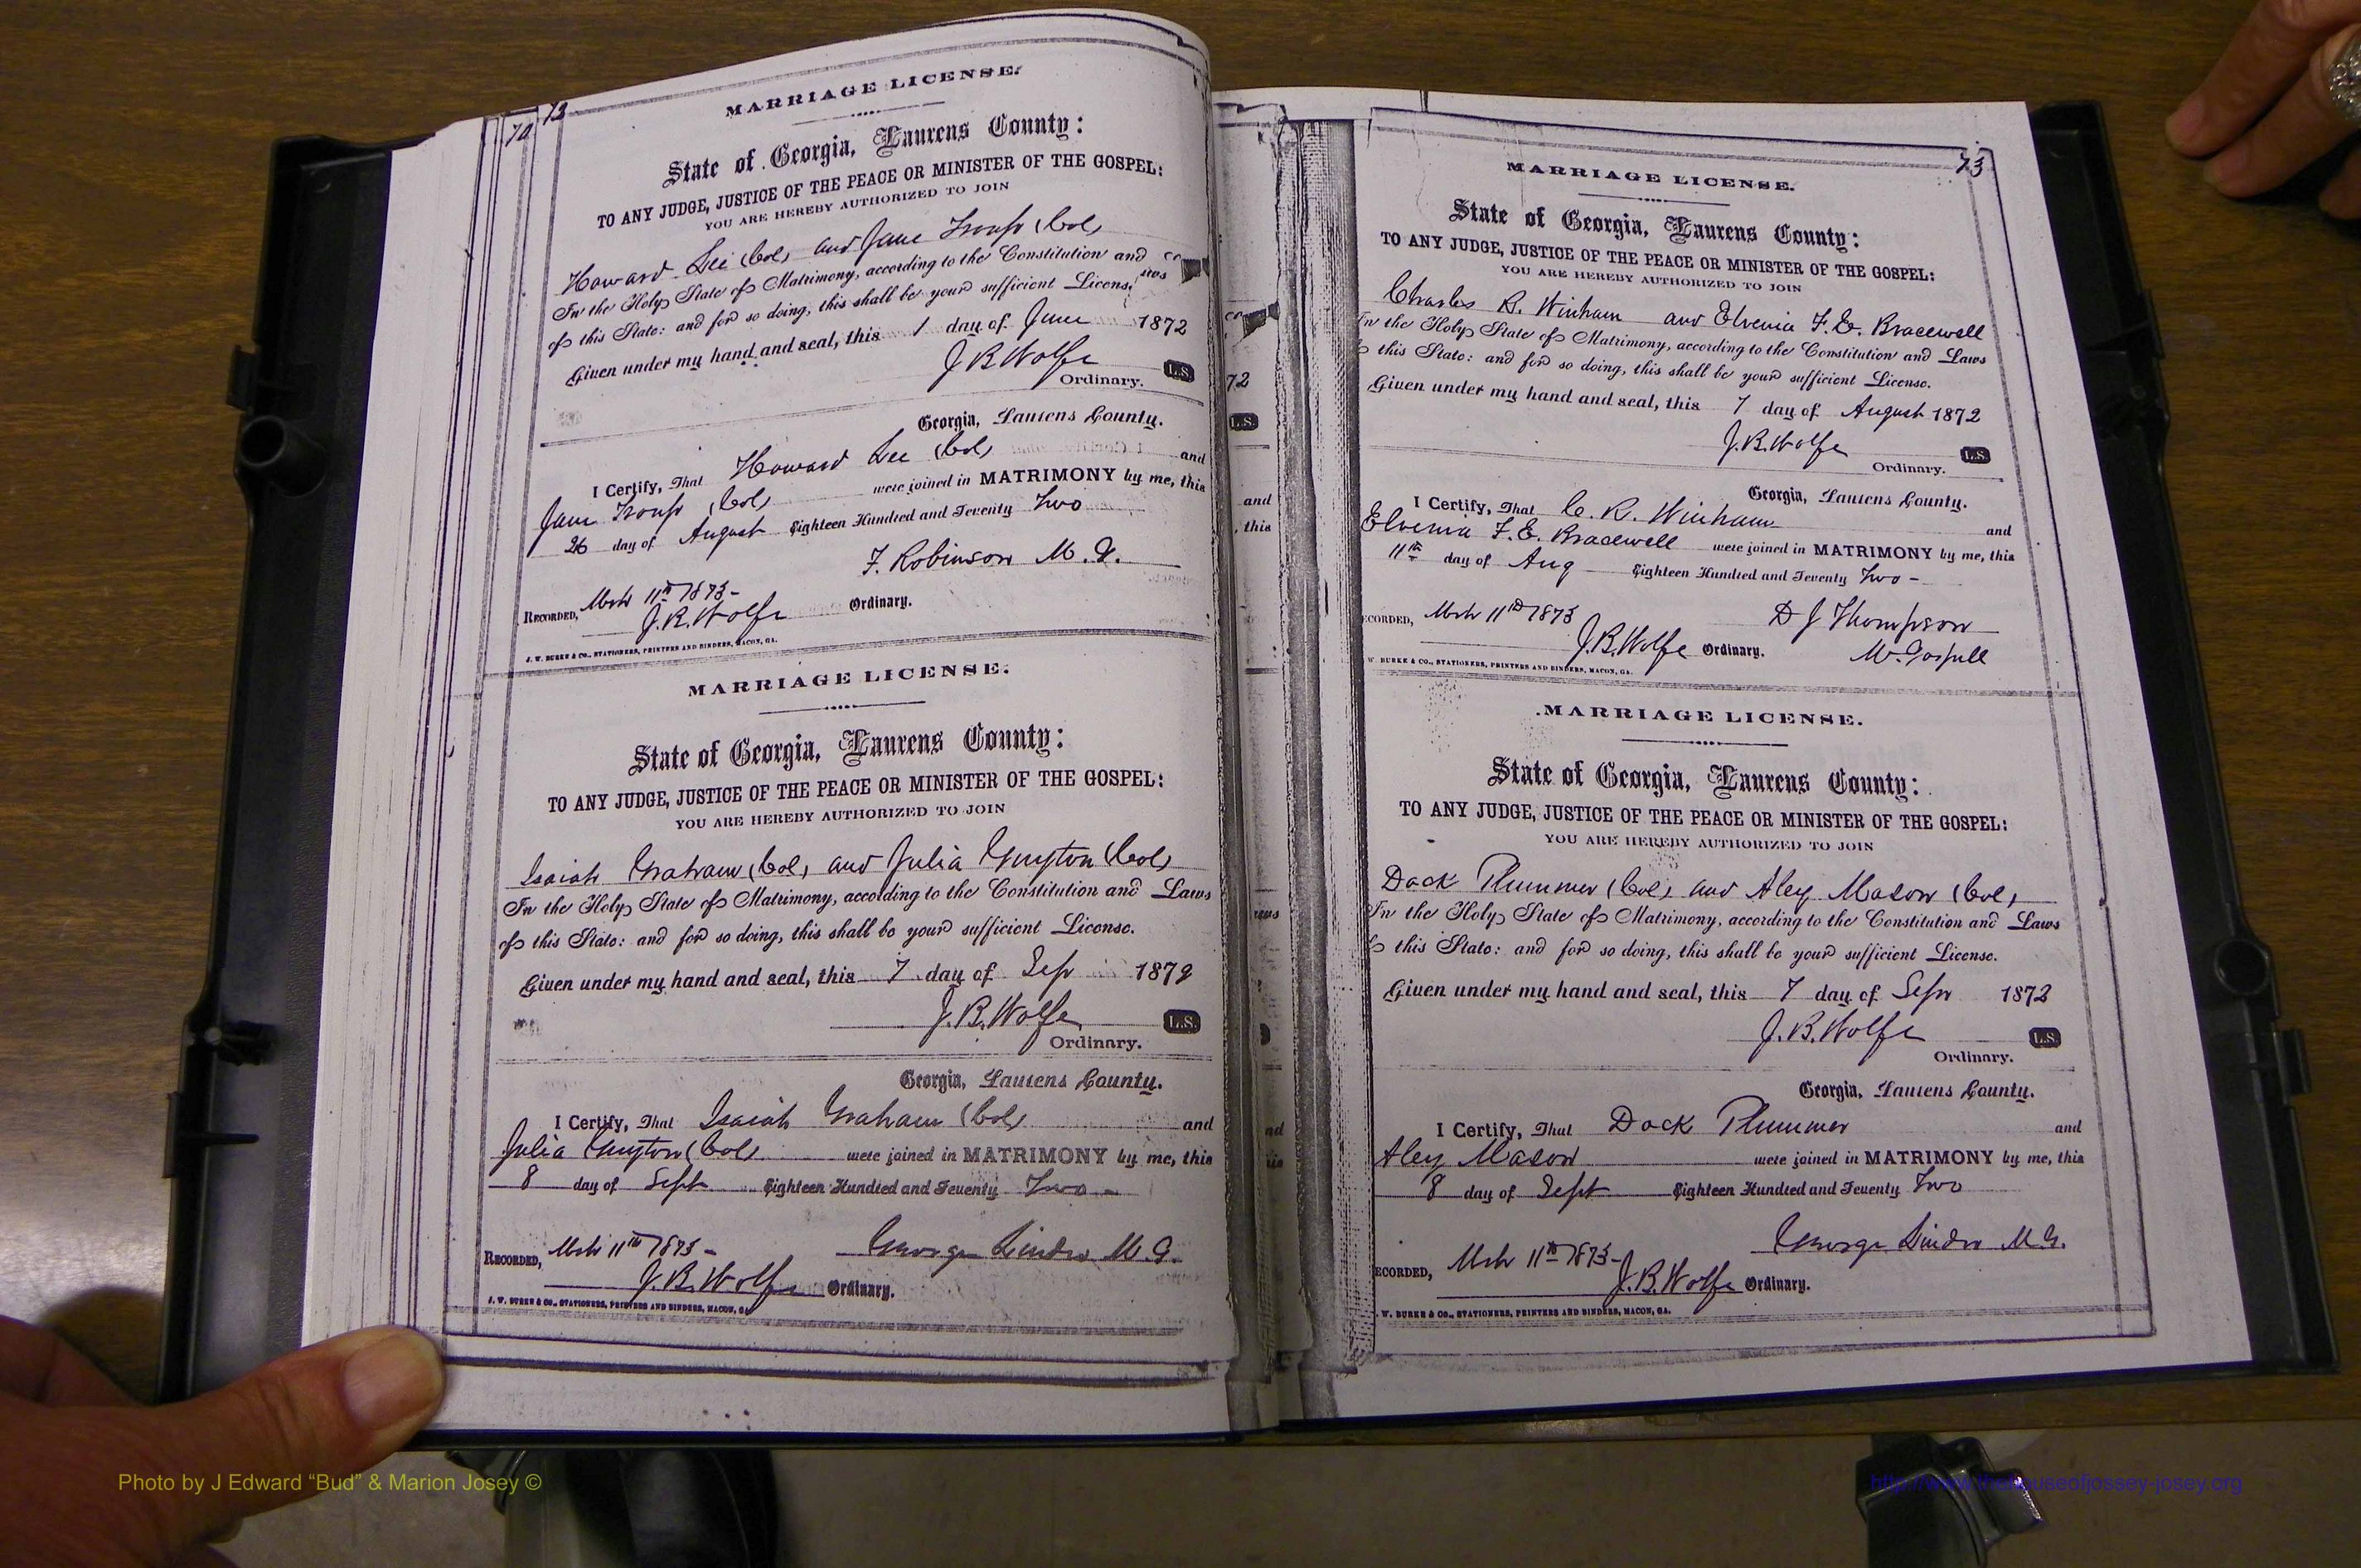 72
70
MARRIAGE LICENSE.
State of Georgia, Laurens County:
TO ANY JUDGE, JUSTICE OF THE PEACE OR MINISTER OF THE GOSPEL:
YOU ARE HEREBY AUTHORIZED TO JOIN
Howard Lee (Col) and Jane Troup (Col)
In the Holy State of Matrimony, according to the Constitution and
of this State: and for so doing, this shall be your sufficient Licens
Given under my hand and seal, this 1 day of June 1872
J.B. Wolfe L.S.
Ordinary.
Georgia, Laurens County.
I Certify, That Howard Lee (Col) and
Jane Troup (Col) were joined in MATRIMONY by me, this
26 day of August Eighteen Hundred and Seventy Two
F. Robinson M.G.
RECORDED, Mch 11th 1873-
J.B. Wolfe Ordinary.
J. W. BURKE & CO., STATIONERS, PRINTERS AND BINDERS, MACON, GA.
MARRIAGE LICENSE.
State of Georgia, Laurens County:
TO ANY JUDGE, JUSTICE OF THE PEACE OR MINISTER OF THE GOSPEL:
YOU ARE HEREBY AUTHORIZED TO JOIN
Isaiah Graham (Col) and Julia Guyton (Col)
In the Holy State of Matrimony, according to the Constitution and Laws
of this State: and for so doing, this shall be your sufficient License.
Given under my hand and seal, this 7 day of Sep 1872
J.B. Wolfe L.S.
Ordinary.
Georgia, Laurens County.
I Certify, That Isaiah Graham (Col) and
Julia Guyton (Col) were joined in MATRIMONY by me, this
8 day of Sept Eighteen Hundred and Seventy Two-
George Linder M.G.
RECORDED, Mch 11th 1873-
J.B. Wolfe Ordinary.
J. W. BURKE & CO., STATIONERS, PRINTERS AND BINDERS, MACON, GA
72
L.S.
and
, this
73
MARRIAGE LICENSE.
State of Georgia, Laurens County:
TO ANY JUDGE, JUSTICE OF THE PEACE OR MINISTER OF THE GOSPEL:
YOU ARE HEREBY AUTHORIZED TO JOIN
Charles R. Winham and Elvenia F.E. Bracewell
In the Holy State of Matrimony, according to the Constitution and Laws
this State: and for so doing, this shall be your sufficient License.
Given under my hand and seal, this 7 day of August 1872
J.B. Wolfe L.S.
Ordinary.
Georgia, Laurens County.
I Certify, That C. R. Winham and
Elvenia F.E. Bracewell were joined in MATRIMONY by me, this
11th day of Aug Eighteen Hundred and Seventy Two-
D J Thompson
ECORDED, Mch 11th 1873
J.B. Wolfe Ordinary. M. Gospell
W. BURKE & CO., STATIONERS, PRINTERS AND BINDERS, MACON, GA.
MARRIAGE LICENSE.
State of Georgia, Laurens County:
TO ANY JUDGE, JUSTICE OF THE PEACE OR MINISTER OF THE GOSPEL:
YOU ARE HEREBY AUTHORIZED TO JOIN
Dock Plummer (Col) and Aley Mason (Col)
In the Holy State of Matrimony, according to the Constitution and Laws
this State: and for so doing, this shall be your sufficient License.
Given under my hand and seal, this 7 day of Sepr 1872
J.B. Wolfe L.S.
Ordinary.
Georgia, Laurens County.
I Certify, That Dock Plummer and
Aley Mason were joined in MATRIMONY by me, this
8 day of Sept Eighteen Hundred and Seventy Two
George Linder M.G.
ECORDED, Mch 11th 1873-
J.B. Wolfe Ordinary.
W. BURKE & CO., STATIONERS, PRINTERS AND BINDERS, MACON, GA.
Photo by J Edward “Bud” & Marion Josey ©
http://www.thehouseofjossey-josey.org